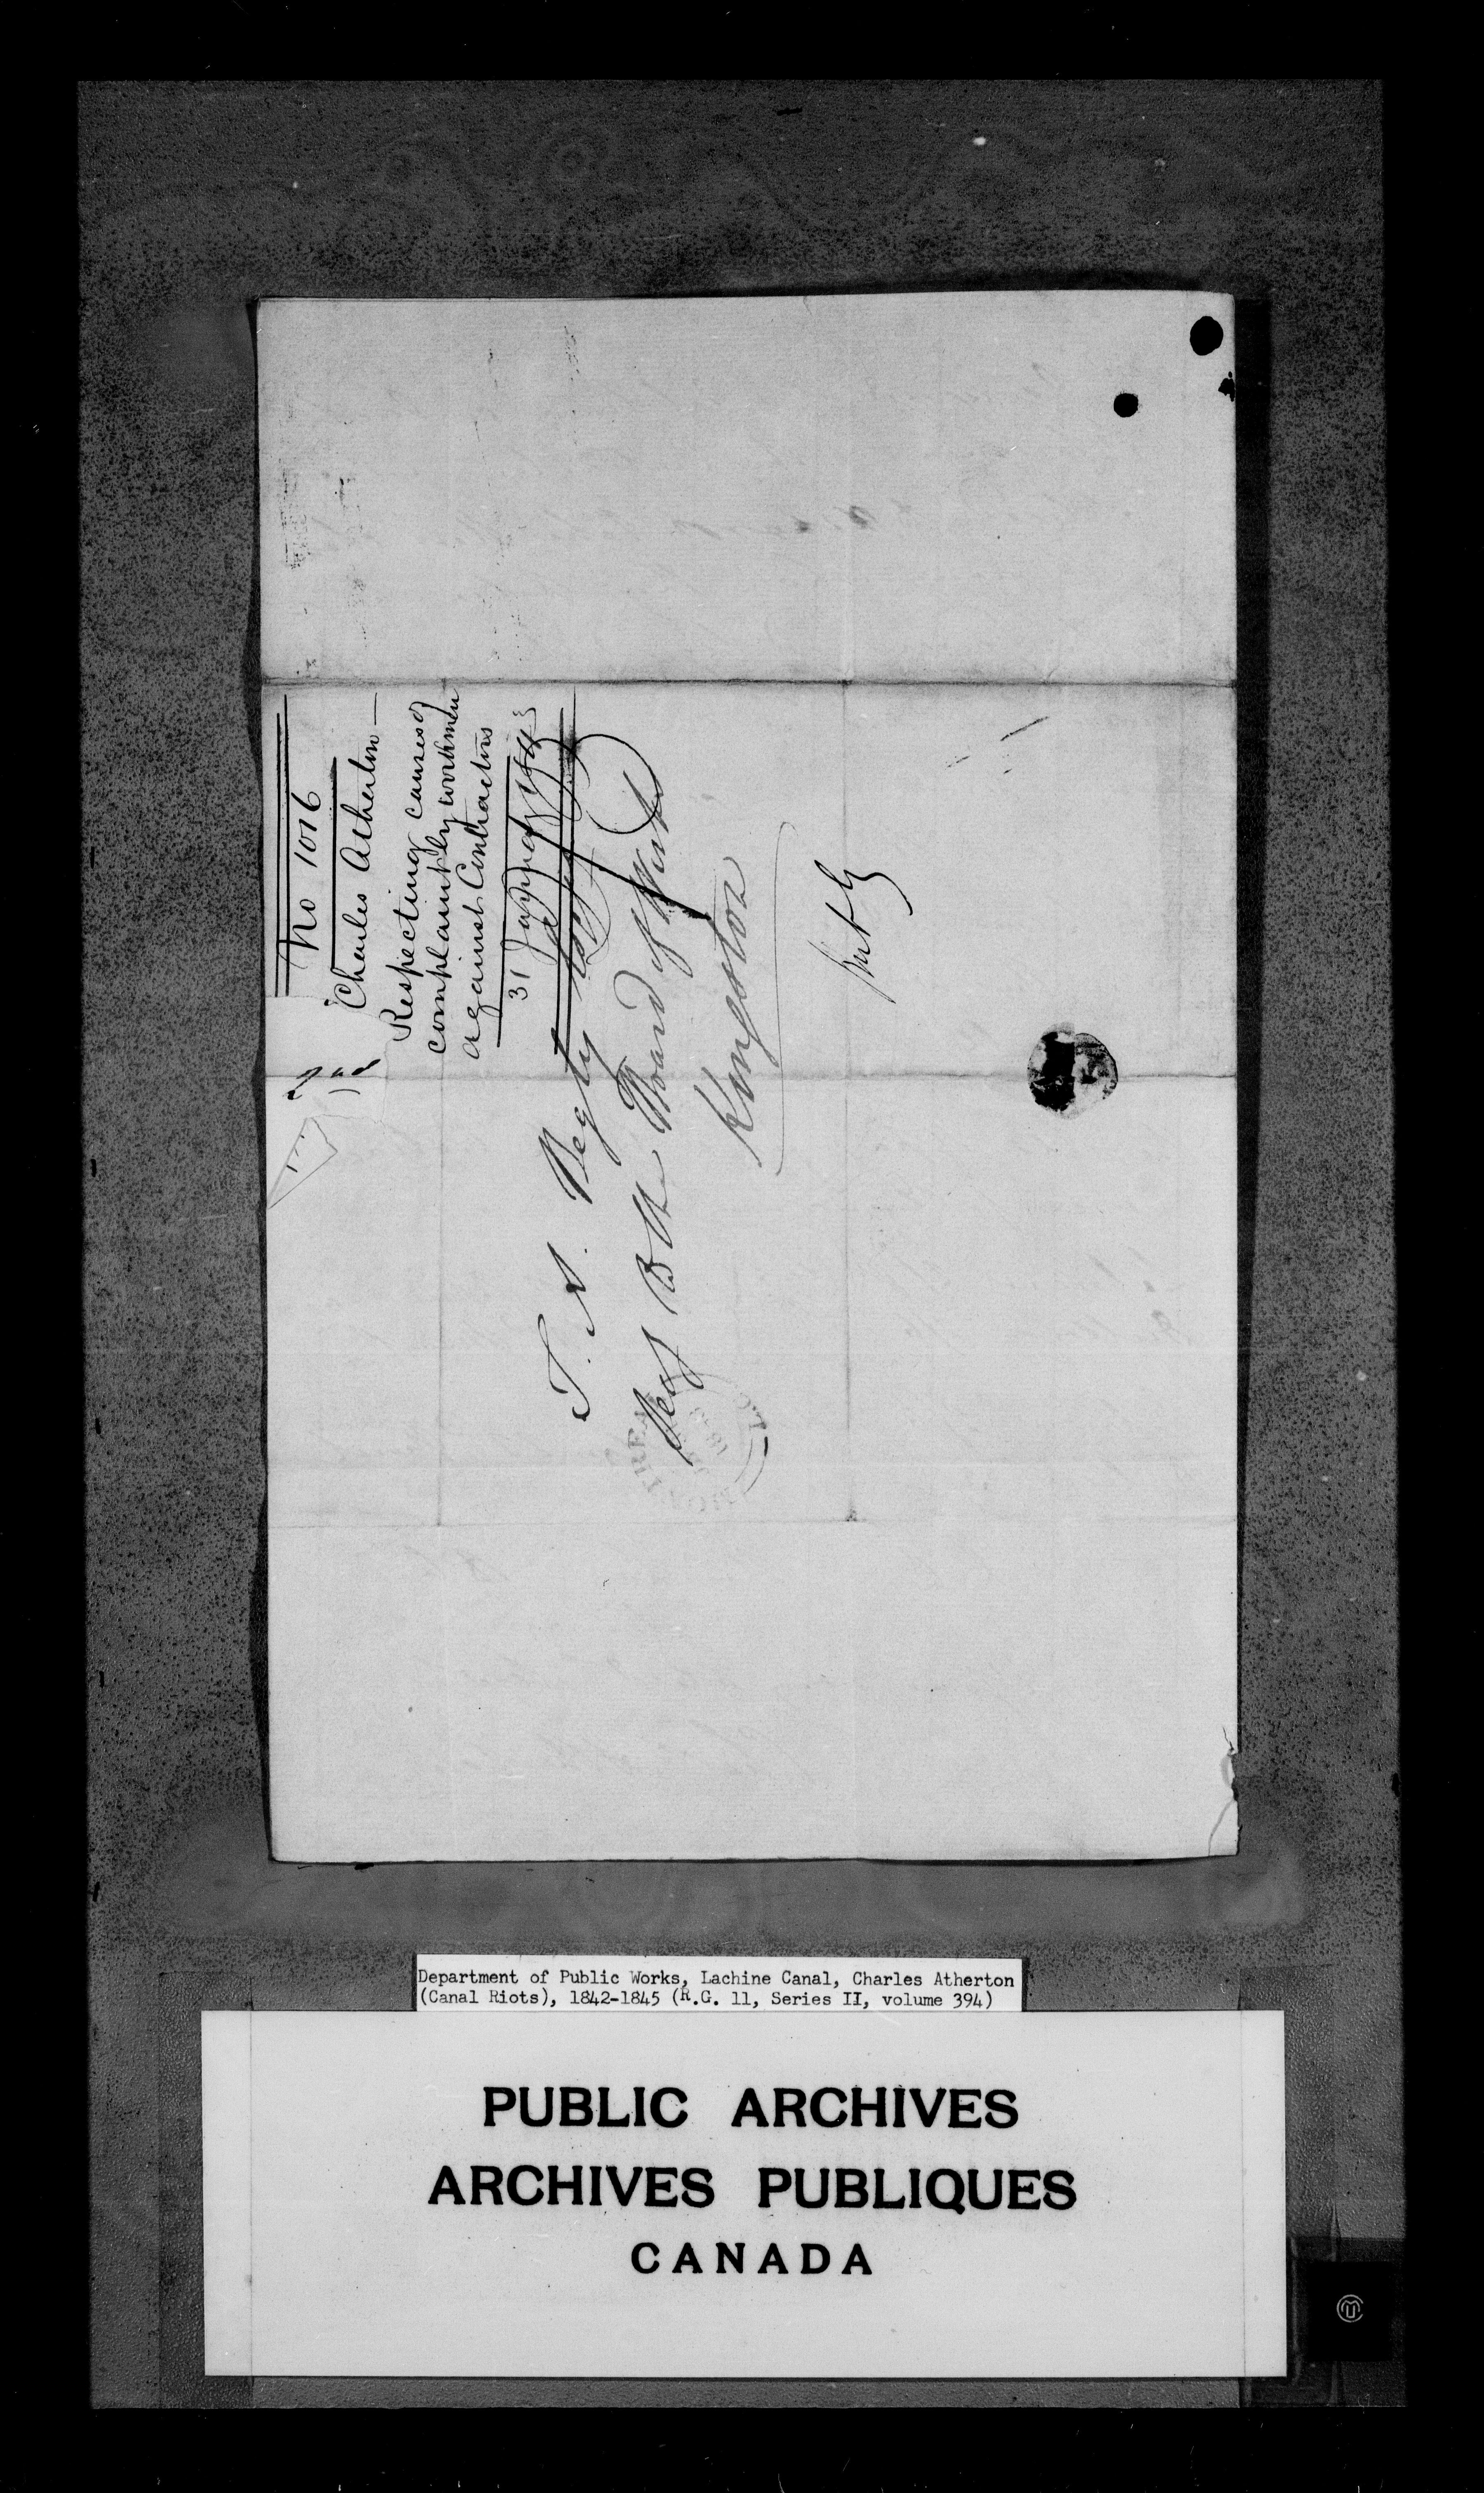 No 1016
Charles Atherton
Respecting causes of
complaint by workmen
against Contractors
31 January 1843
2nd
T. A. Begly Esq
Secy B the Board of Works
Kingston
MONTREAL
Department of Public Works, Lachine Canal, Charles Atherton
(Canal Riots), 1842-1845 (R.G. 11, Series II, volume 394)
PUBLIC ARCHIVES
ARCHIVES PUBLIQUES
CANADA